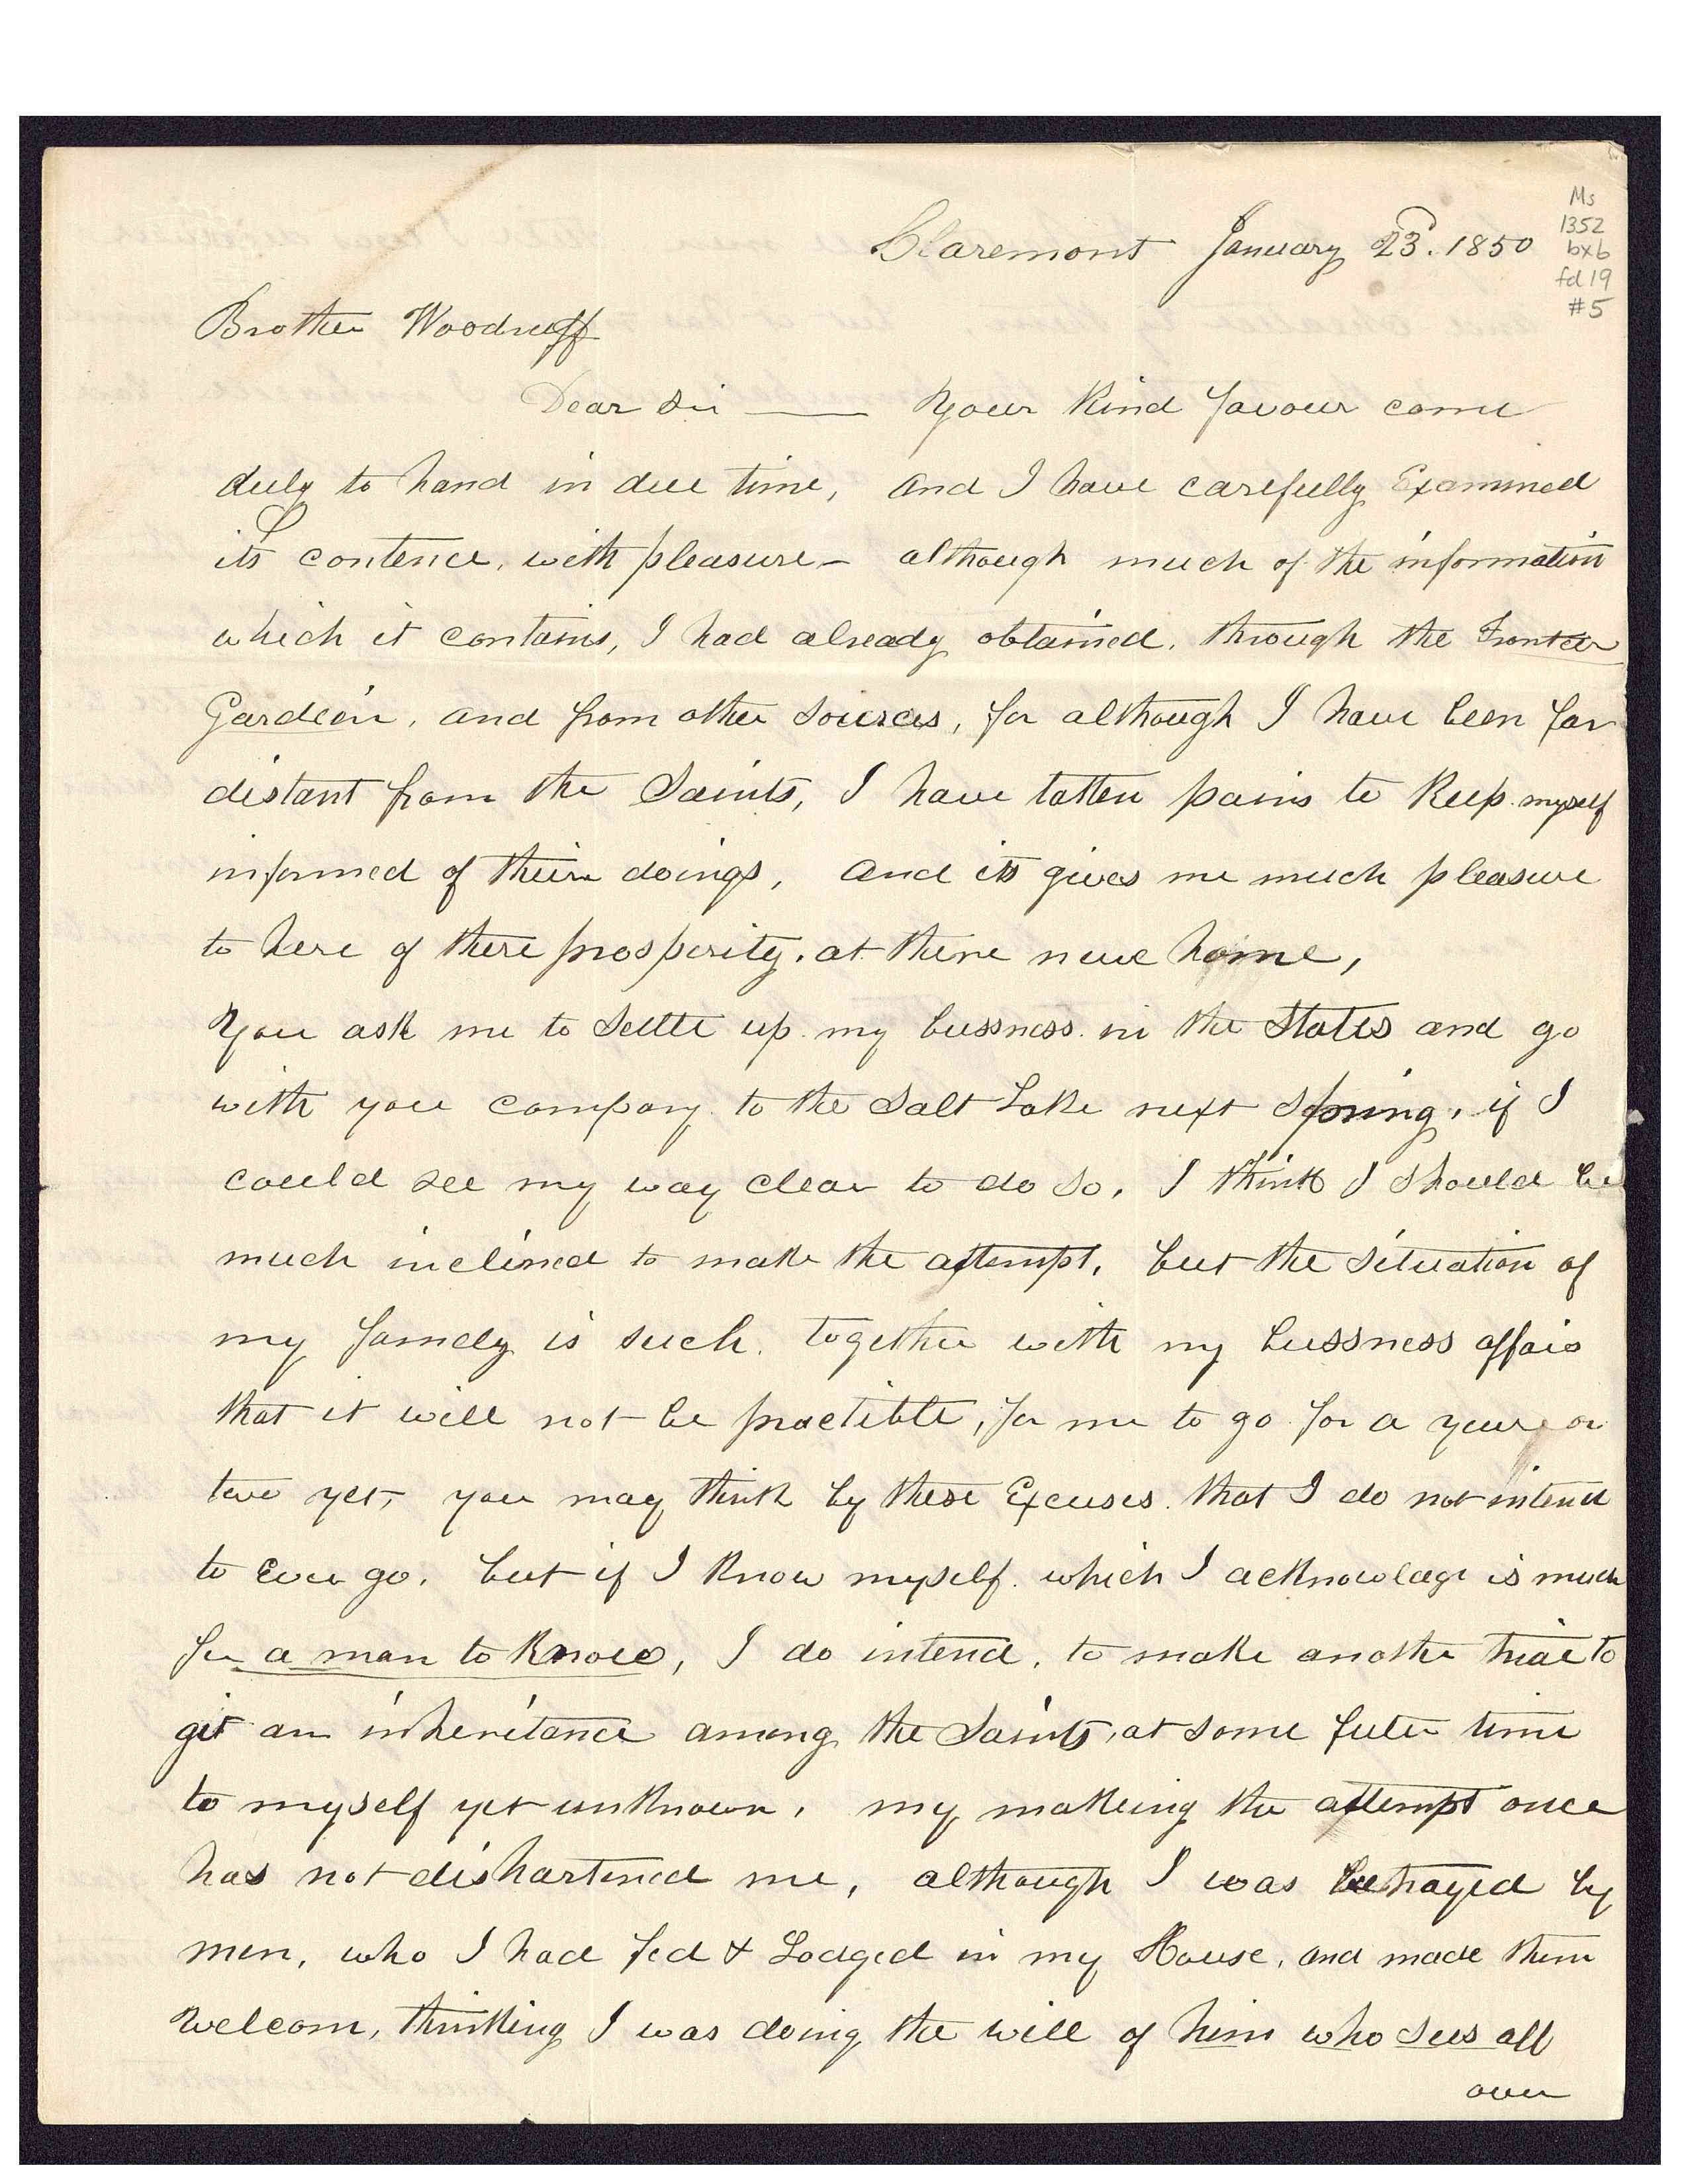 Claremont January 23d. 1850
Ms
1352
bx6
fd 19
#5
Brother Woodruff
Dear Sir —— Your kind favour came
duly to hand in due time, and I have carefully Examined
its contence, with pleasure - although much of the information
which it contains, I had already obtained, through the Frontier
Gardein, and from other sources, for although I have been far
distant from the Saints, I have taken pains to keep myself
informed of their doings, and it gives me much pleasure
to here of there prosperity, at there new home,
You ask me to settle up my bussness in the States and go
with you company to the Salt Lake next Spring, if I
could see my way clear to do so, I think I should be
much inclined to make the attempt, but the situation of
my famely is such, together with my bussness affairs
that it will not be practible, for me to go for a year or
two yet, you may think by these Excuses that I do not intend
to Ever go, but if I know myself which I acknowlage is much
for a man to know, I do intend, to make another trial to
git an inheritance among the Saints, at some futer time
to myself yet unknown, my makeing the attempt once
has not dishartened me, although I was betrayed by
men, who I had fed & Lodged in my House, and made them
Welcom, thinking I was doing the will of him who sees all
over